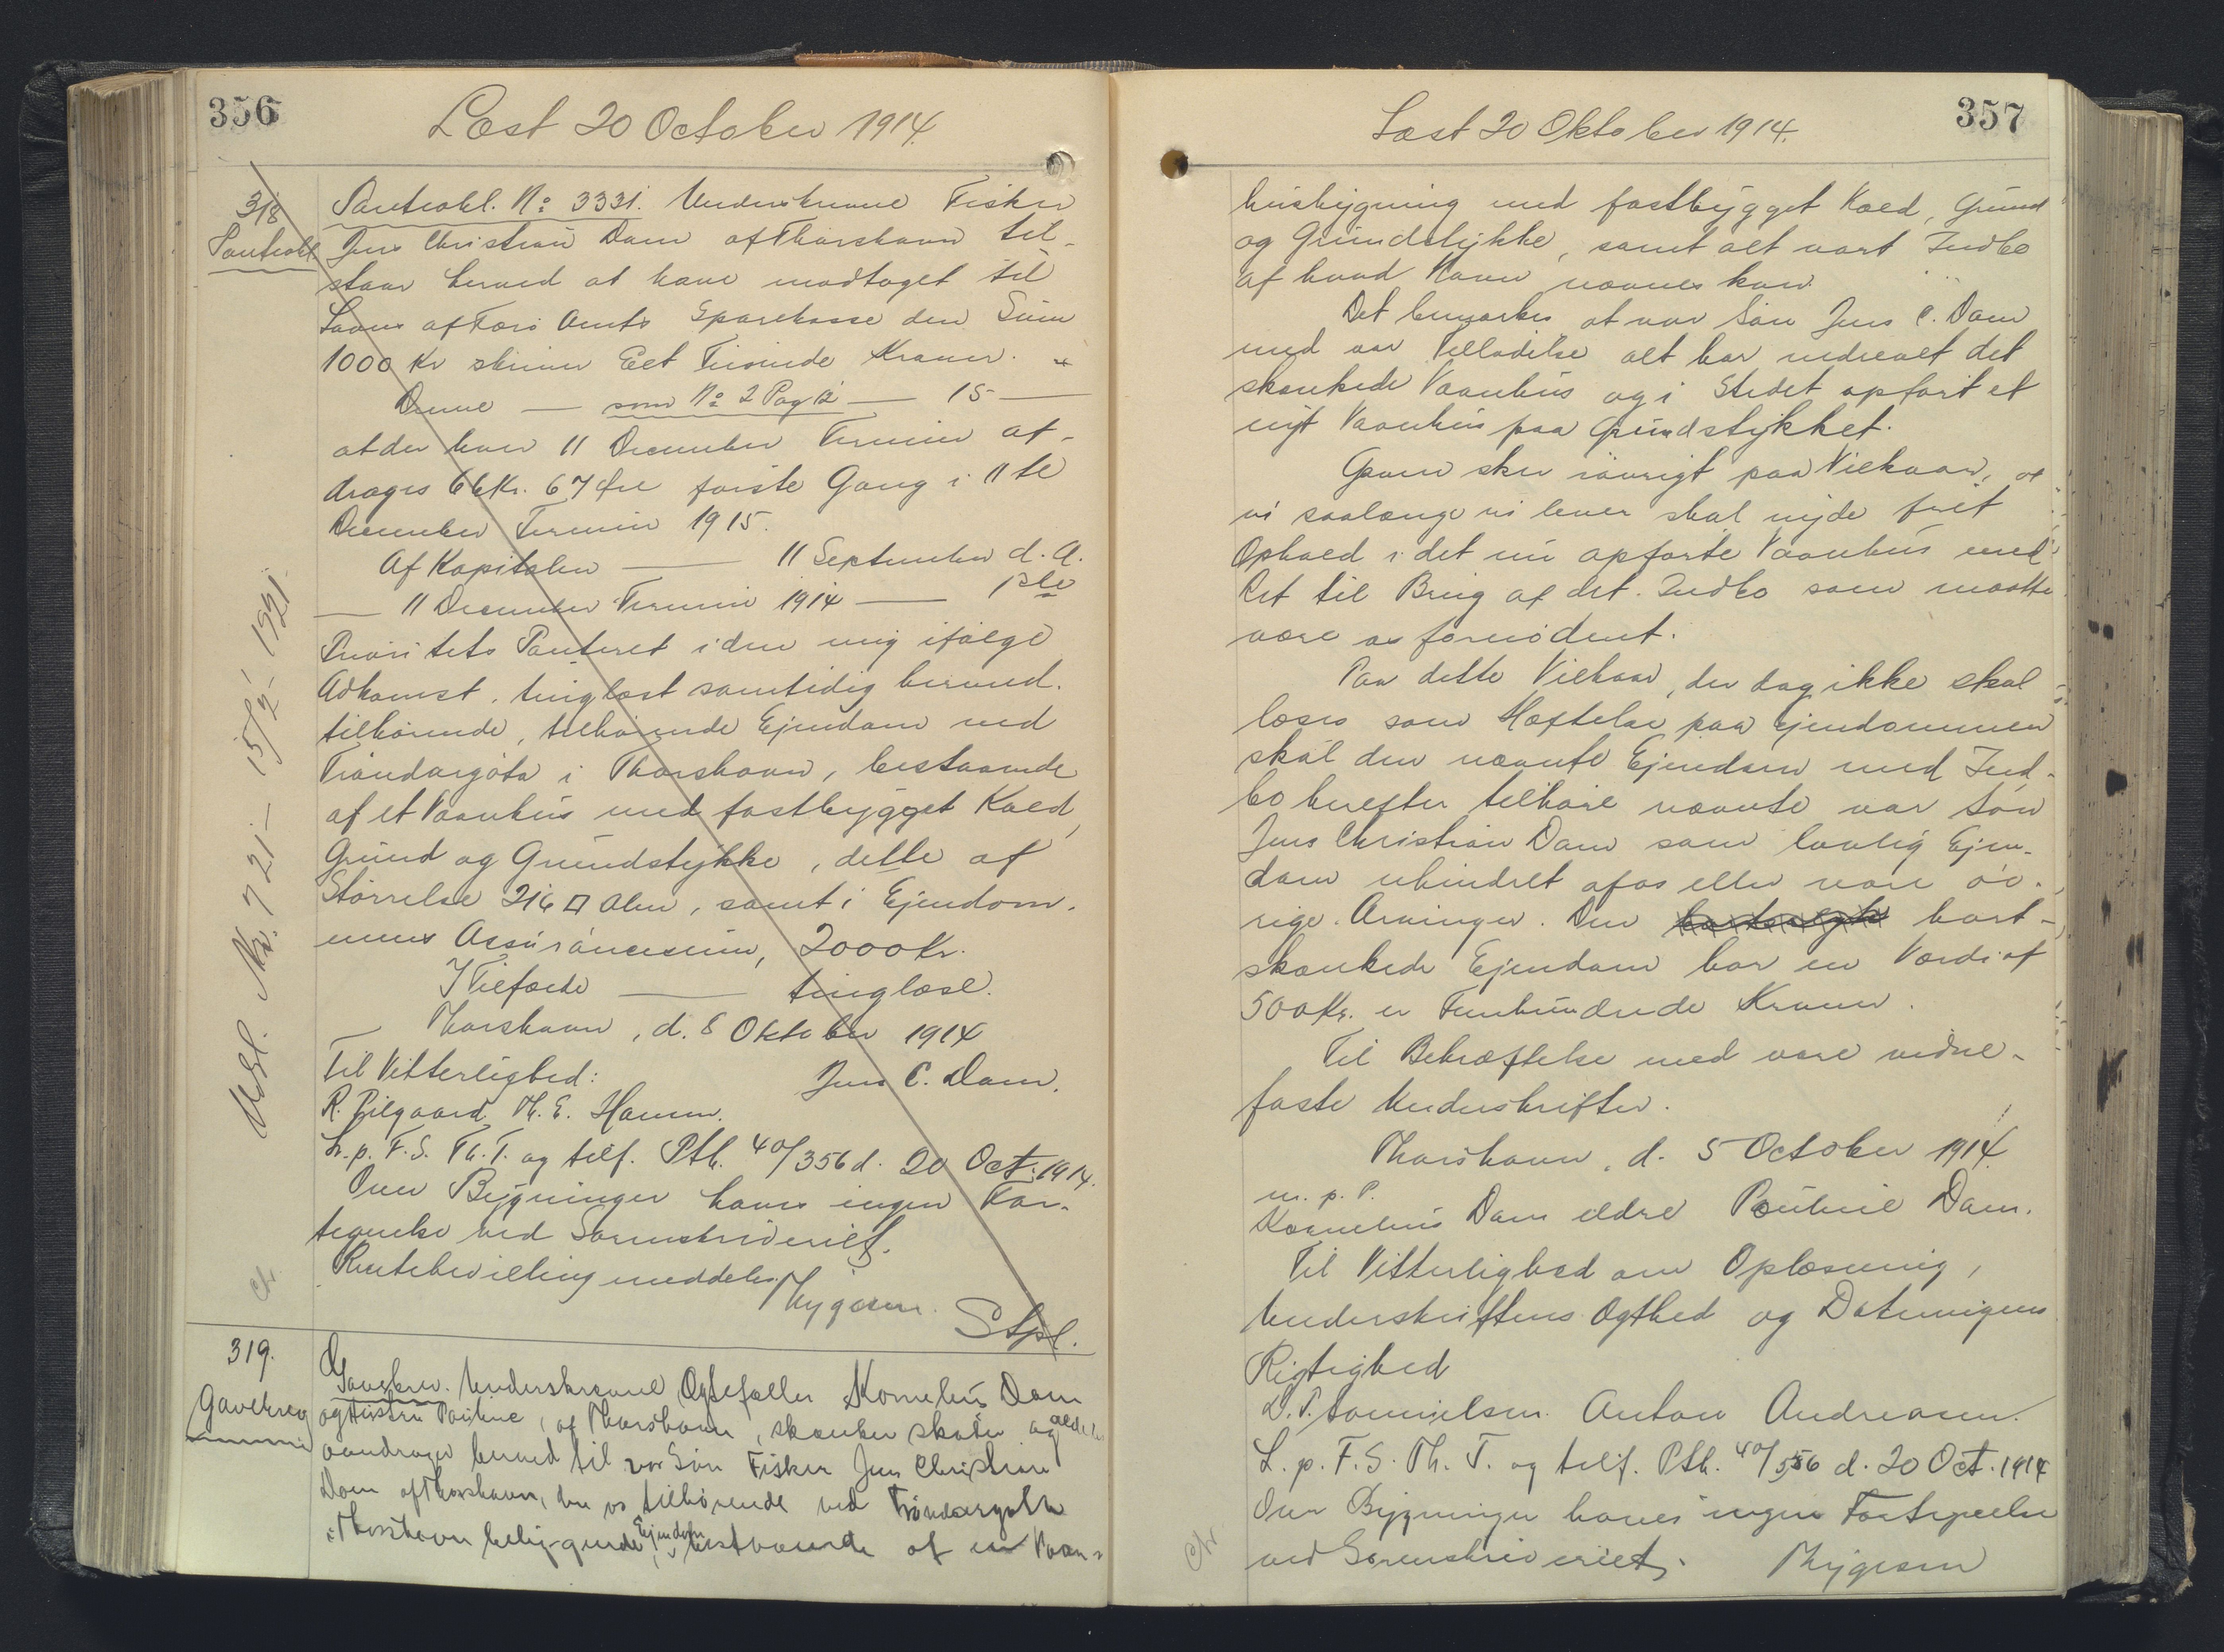 356
Læst 20 October 1914.
318
Panteobl.
Panteobl. No 3331. Underskrevne Fisker
Jens Christian Dam af Thorshavn til-
staar herved at have modtaget til
Laans af Færø Amts Sparekasse den Sum
1000 Kr skriver Eet Tusinde Kroner.
Denne — som No 2 Pag 2 — 15 —
at der hver 11 December Termin af-
drages 66 Kr. 67 Øre første Gang i 11te
December Termin 1915.
Af Kapitalen — 11 September d. A.
— 11 December Termin 1914 — 1ste
Prioritets Panteret i den mig ifølge
Adkomst, tinglæst samtidig herved.
tilhørende, tilhørende Ejendom ved
Tróndargøta i Thorshavn, bestaaende
af et Vaanhus med fastbygget Kæld,
Grund og Grundstykke, dette af
Størrelse 216 □ Alen, samt i Ejendom-
mens Assurancesum, 2000 Kr.
I Tilfælde — tinglæse.
Thorshavn, d. 8 Oktober 1914
Til Vitterlighed: Jens C. Dam.
R. Pilgaard. M. E. Hamm.
L. p. F. S. Th. T. og tilf. Ptb. 40/356 d. 20 Oct. 1914.
Over Bygninger haves ingen For-
tegnelse ved Sorenskriveriet.
Rentebevilling meddeles. Thygesen.
Stpl.
Udsl. No. 721 — 15/2 - 1921.
319.
Gavebrev
Gavebrev. Underskrevne Ægtefæller Kornelius Dam ældre
og Hustru Pouline, af Thorshavn, skænker skøder og
overdrager herved til vor Søn Fisker Jens Christian
Dam af Thorshavn, den os tilhørende ved Tróndargøta
i Thorshavn beliggende Ejendom, bestaaende af en Vaan-
357
Læst 20 Oktober 1914.
husbygning med fastbygget Kæld, Grund
og Grundstykke, samt alt vort Indbo
af hvad Navn nævnes kan.
Det bemærkes at vor Søn Jens C. Dam
med vor Tilladelse alt har nedrevet det
skænkede Vaanhus og i Stedet opført et
nyt Vaanhus paa Grundstykket.
Gaven sker iøvrigt paa Vilkaar, at
vi saalænge vi lever skal nyde frit
Ophold i det nu opførte Vaanhus med
Ret til Brug af det Indbo som maatte
være os fornødent.
Paa dette Vilkaar, der dog ikke skal
læses som Hæftelse paa Ejendommen
skal den nævnte Ejendom med Ind-
bo herefter tilhøre nævnte vor Søn
Jens Christian Dam som lovlig Ejen-
dom uhindret af os eller vore øv-
rige Arvinger. Den bort-
skænkede Ejendom har en Værdi af
500 Kr. er Femhundrede Kroner.
Til Bekræftelse med vore vidne-
faste Underskrifter.
Thorshavn, d. 5 October 1914.
m. p. P.
Kornelius Dam ældre Pouline Dam.
Til Vitterlighed om Oplæsning,
Underskriftens Ægthed og Dateringens
Rigtighed
D. P. Samuelsen. Anton Andreasen.
L. p. F. S. Th. T. og tilf. Ptb. 40/356 d. 20 Oct. 1914
Over Bygninger haves ingen Fortegnelse
ved Sorenskriveriet. Thygesen